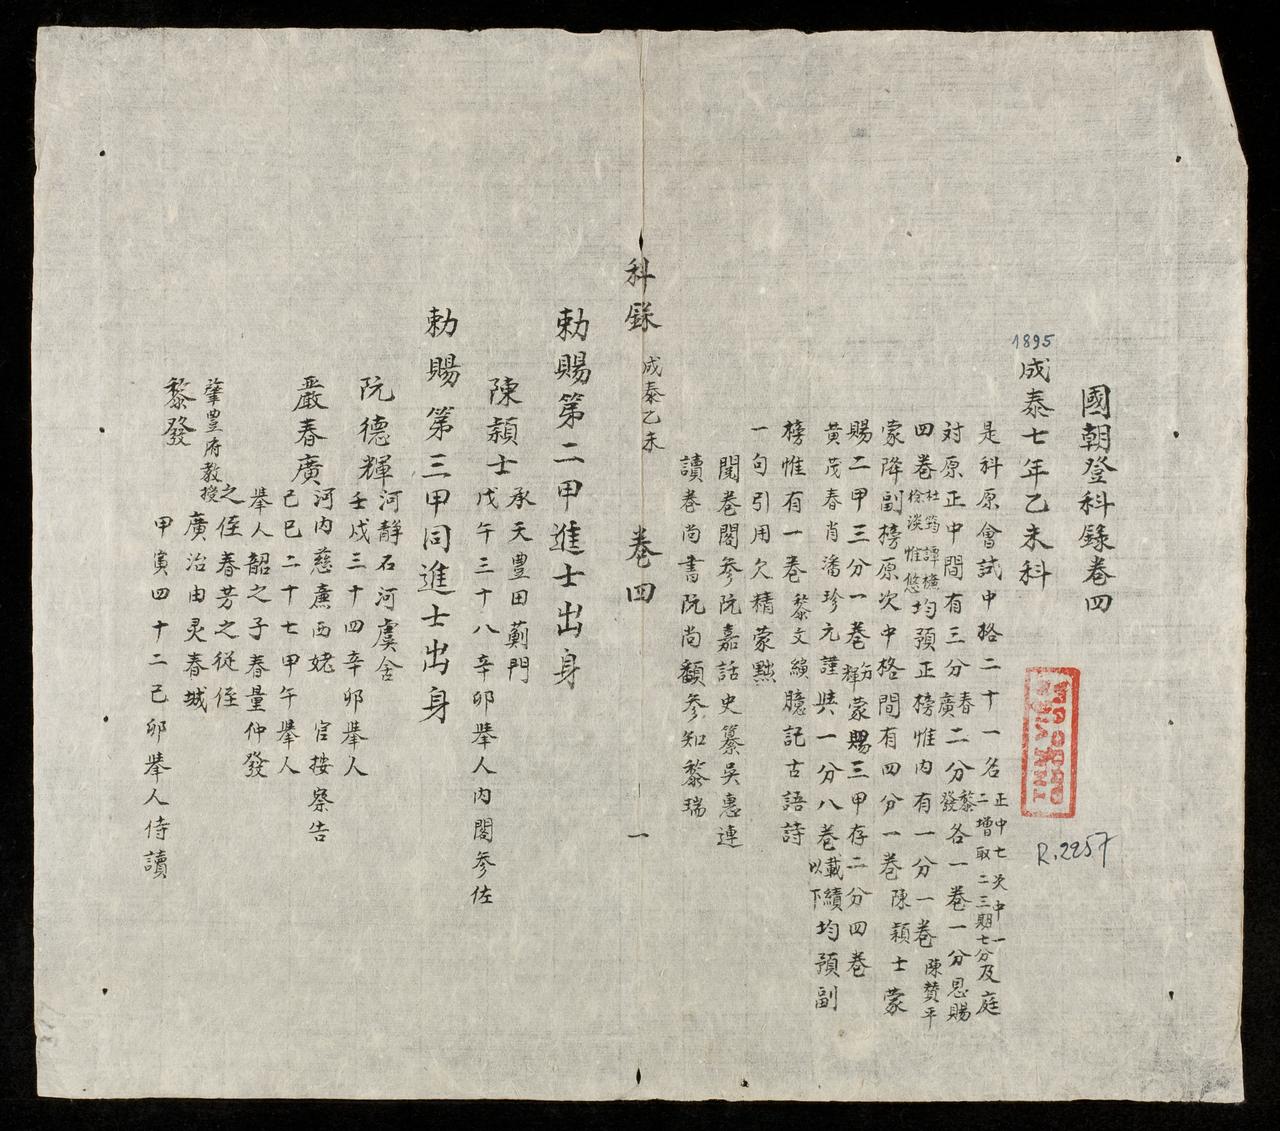 國朝登科錄卷四
1895
成泰七年乙未科
THƯ VIỆN
QUỐC GIA
R.2257
是科原會試中格二十一名正中七次中一二增取二三期七分及庭
対原正中間有三分春廣二分黎發各一卷一分恩賜
四卷杜筠譚惟悠均預正榜惟内有一分一卷陳贊平
蒙降副榜原次中格間有四分一卷陳穎士蒙
賜二甲三分一卷阮輝蒙賜三甲存二分四卷
黄茂春肖潘珍元謹與一分八卷以下載續均預副
榜惟有一卷黎文縯臆記古語詩
一句引用欠精蒙黜
閱卷閣參阮嘉話史纂吳惠連
讀卷尚書阮尚顜參知黎瑞
科錄 成泰乙未 卷四 一
勅賜第二甲進士出身
陳穎士承天豊田薊門
戊午三十八辛卯舉人内閣參佐
勅賜第三甲同進士出身
阮德輝河靜石河虞舍
壬戌三十四辛卯舉人
嚴春廣河内慈廉西姥 官按察告
己巳二十七甲午舉人
舉人韶之子春量仲發
之侄春芳之従侄
肇豊府教授
黎發廣治由灵春城
甲寅四十二己卯舉人侍讀